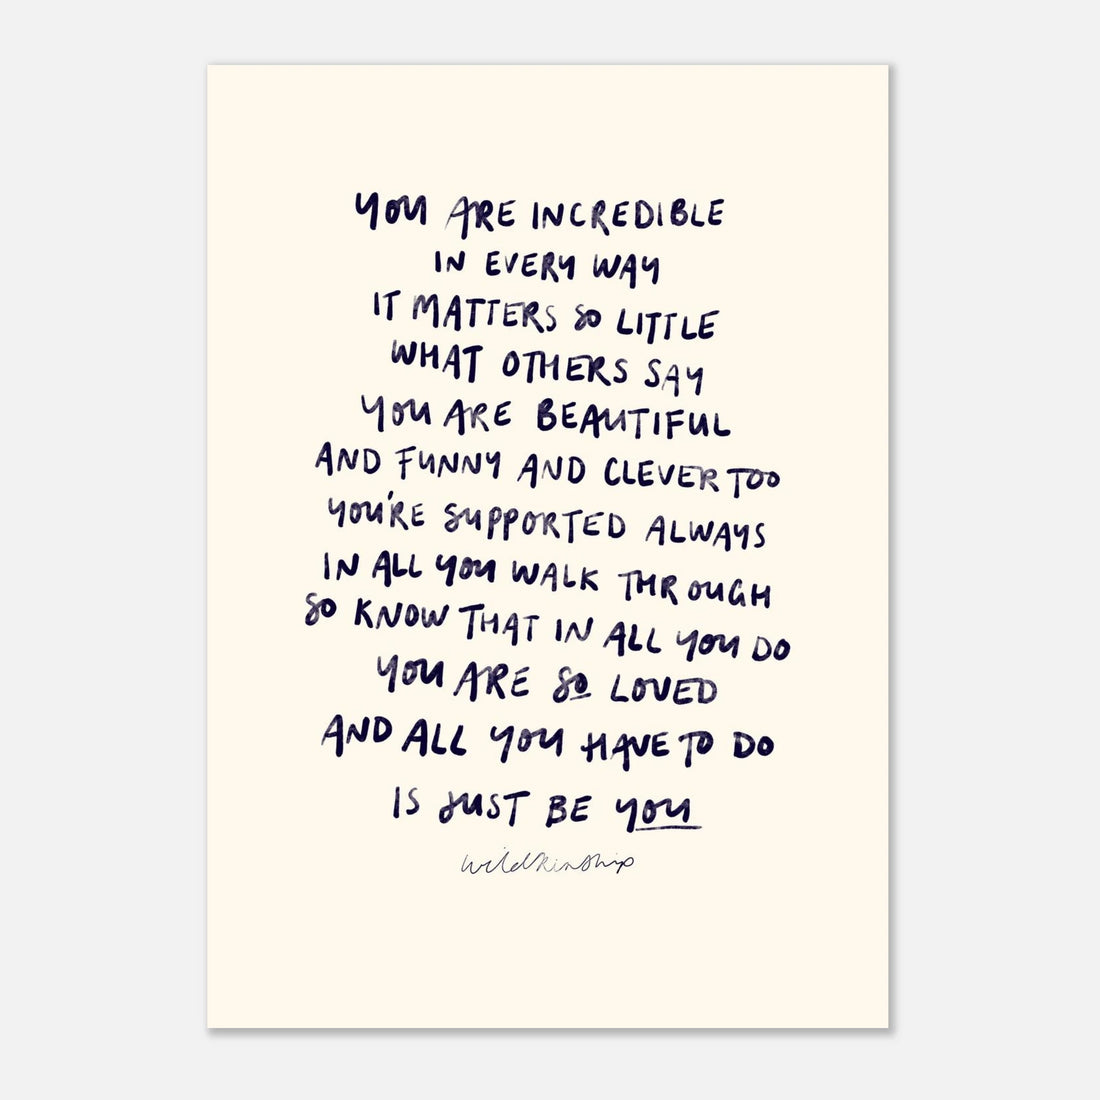 YOU ARE INCREDIBLE
IN EVERY WAY
IT MATTERS SO LITTLE
WHAT OTHERS SAY
YOU ARE BEAUTIFUL
AND FUNNY AND CLEVER TOO
YOU'RE SUPPORTED ALWAYS
IN ALL YOU WALK THROUGH
SO KNOW THAT IN ALL YOU DO
YOU ARE SO LOVED
AND ALL YOU HAVE TO DO
IS JUST BE YOU
wildkinship